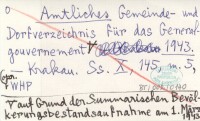 o Amtliches Gemeinde- und
Dorfverzeichnis für das General-
gouvernement V 1943.
Krakau. Ss. X, 145, m. 5,
WHP
V auf Grund der Summarischen Bevöl-
kerungsbestandsaufnahme am 1. März
1943